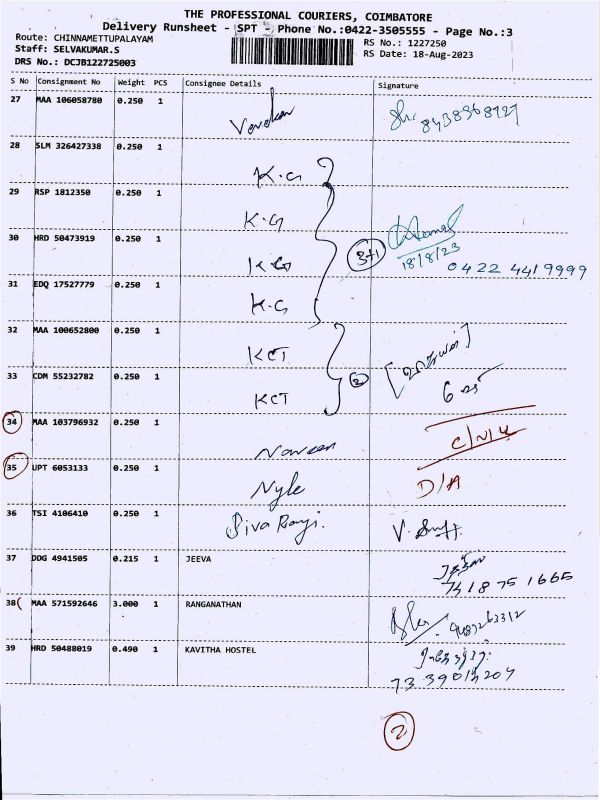 THE PROFESSIONAL COURIERS, COIMBATORE
Delivery Runsheet - SPT - Phone No.:0422-3505555 - Page No.:3
Route: CHINNAMETTUPALAYAM
RS No.: 1227250
Staff: SELVAKUMAR.S
RS Date: 18-Aug-2023
DRS No.: DCJB122725003
S No Consignment No Weight PCS Consignee Details Signature
27 MAA 106058780 0.250 1
28 SLM 326427338 0.250 1 K.G
29 RSP 1812350 0.250 1 K.G
30 HRD 50473919 0.250 1 K.G 3+1
18/8/23
0422 4419999
31 EDQ 17527779 0.250 1 K.G
32 MAA 100652800 0.250 1 KCT
33 CDM 55232782 0.250 1 KCT 2
34 MAA 103796932 0.250 1 Naveen
35 UPT 6053133 0.250 1 Nyle D/A
36 TSI 4106410 0.250 1
37 DDG 4941505 0.215 1 JEEVA
38 MAA 571592646 3.000 1 RANGANATHAN
39 HRD 50488019 0.490 1 KAVITHA HOSTEL
2